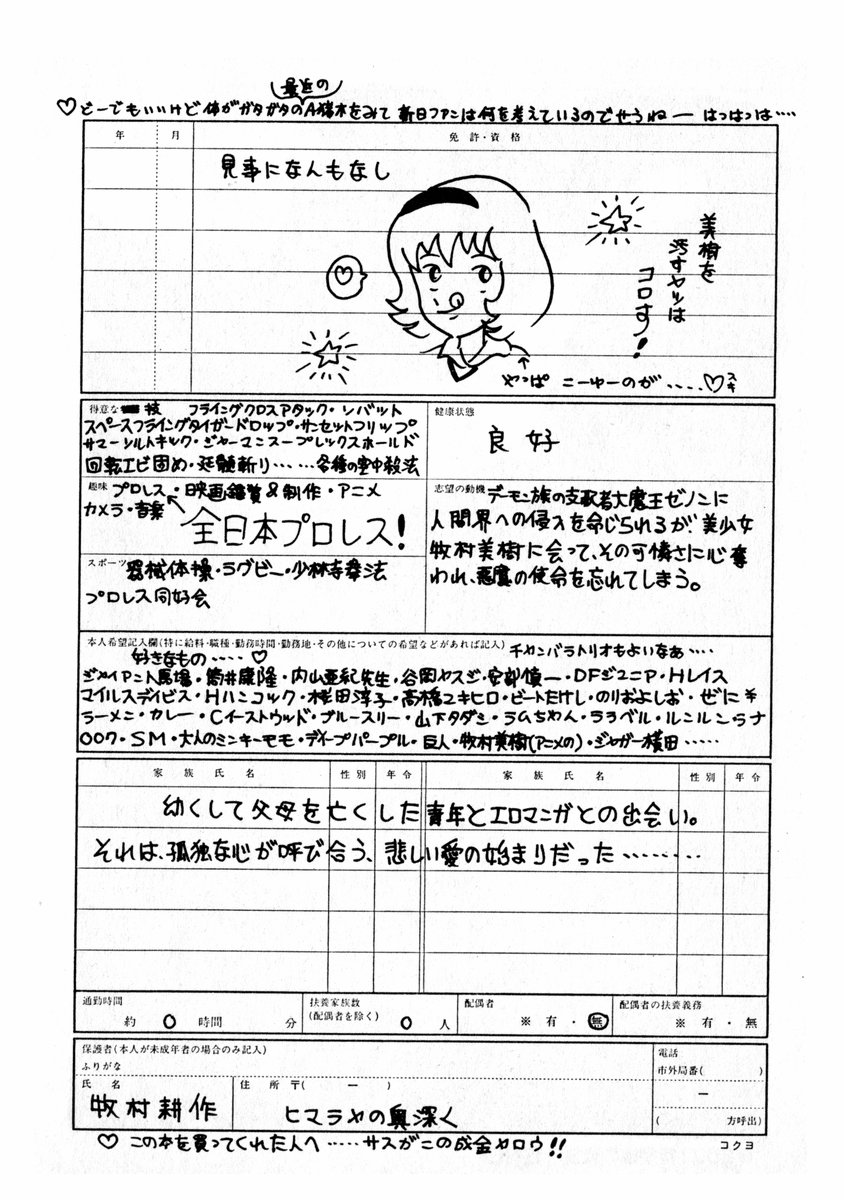 最近の
♡どーでもいいけど体がガタガタのA猪木をみて新日ファンは何を考えているのでせうねー はっはっは‥‥
年 月 免許・資格
見事になんもなし
美樹を
汚すヤツは
コロす!
♡
やっぱ こーゆーのが‥‥‥♡スキ
得意な 技 フライングクロスアタック・トペ
スペースフライングタイガードロップ・サンセットフリップ
サマーソルトキック・ジャーマンスープレックスホールド
回転エビ固め・延髄斬り‥‥‥各種の空中殺法
健康状態
良好
趣味 プロレス・映画鑑賞&制作・アニメ
カメラ・音楽
全日本プロレス!
志望の動機 デーモン族の支配者大魔王ゼノンに
人間界への侵入を命じられるが、美少女
牧村美樹に会って、その可憐さに心奪
われ、悪魔の使命を忘れてしまう。
スポーツ 器械体操・ラグビー・少林寺拳法
プロレス同好会
本人希望記入欄(特に給料・職種・勤務時間・勤務地・その他についての希望などがあれば記入) チャンバラトリオもよいなあ‥‥
好きなもの‥‥♡
ジャイアント馬場・筒井康隆・内山亜紀先生・谷岡ヤスジ・安部慎一・DFジュニア・Hレイス
マイルスデイビス・Hハンコック・桜田淳子・高橋ユキヒロ・ビートたけし・のりおよしお・ぜに¥
ラーメン・カレー・Cイーストウッド・ブルースリー・山下タダシ・ラムちゃん・ララベル・ルンルンラナ
007・SM・大人のミンキーモモ・ディープパープル・巨人・牧村美樹(アニメの)・ジャガー横田‥‥‥
家族氏名 性別 年令 家族氏名 性別 年令
幼くして父母を亡くした青年とエロマンガとの出会い。
それは、孤独な心が呼び合う、悲しい愛の始まりだった‥‥‥‥
通勤時間
約 0 時間 分
扶養家族数
(配偶者を除く) 0 人
配偶者
※ 有・無
配偶者の扶養義務
※ 有・無
保護者(本人が未成年者の場合のみ記入)
ふりがな
氏名 住所 〒( ー )
牧村耕作 ヒマラヤの奥深く
電話
市外局番( )
ー
( 方呼出)
♡この本を買ってくれた人へ‥‥‥サスがこの成金ヤロウ!!
コクヨ